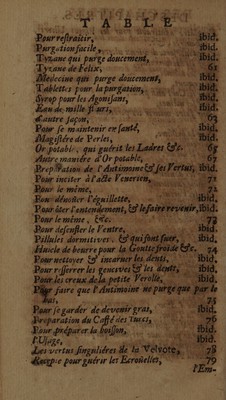 TABLE
Pour restraicir, ibid.
Purgation facile, ibid.
Tyzane qui purge doucement, ibid.
Tyzane de Felix, 61
Medecine qui purge doucement, ibid.
Tablettes pour la purgation, ibid.
Syrop pour les Agonisans, ibid.
Eau de mille fleurs, ibid.
d'autre façon, 63
Pour se maintenir en santé, ibid.
Magistére de Perles, ibid.
Or potable, qui guérit les Ladres &c. 65
Autre maniére d'Or potable, 67
Préparation de l'Antimoine & ses Vertus, ibid.
Pour inciter à l'acte Venerien, 71
Pour le même, 72
Pour dénoüer l'éguillette, ibid.
Pour ôter l'entendement, & le faire revenir, ibid.
Pour le même, &c. 73
Pour desenfler le Ventre, ibid.
Pillules dormitives, & qui font suer, ibid.
Huicle de beurre pour la Goutte froide &c. 74
Pour nettoyer & incarner les dents, ibid.
Pour resserrer les gencives & les dents, ibid.
Pour les creux de la petite Verolle, ibid.
Pour faire que l'Antimoine ne purge que par le
bas, 75
Pour se garder de devenir gras, ibid.
Préparation du Caffé des Turcs, 76
Pour préparer la boisson, ibid.
l'Usage, ibid.
Les vertus singuliéres de la Velvote, 78
pour guérir les Ecroüelles, 79
l'Em-